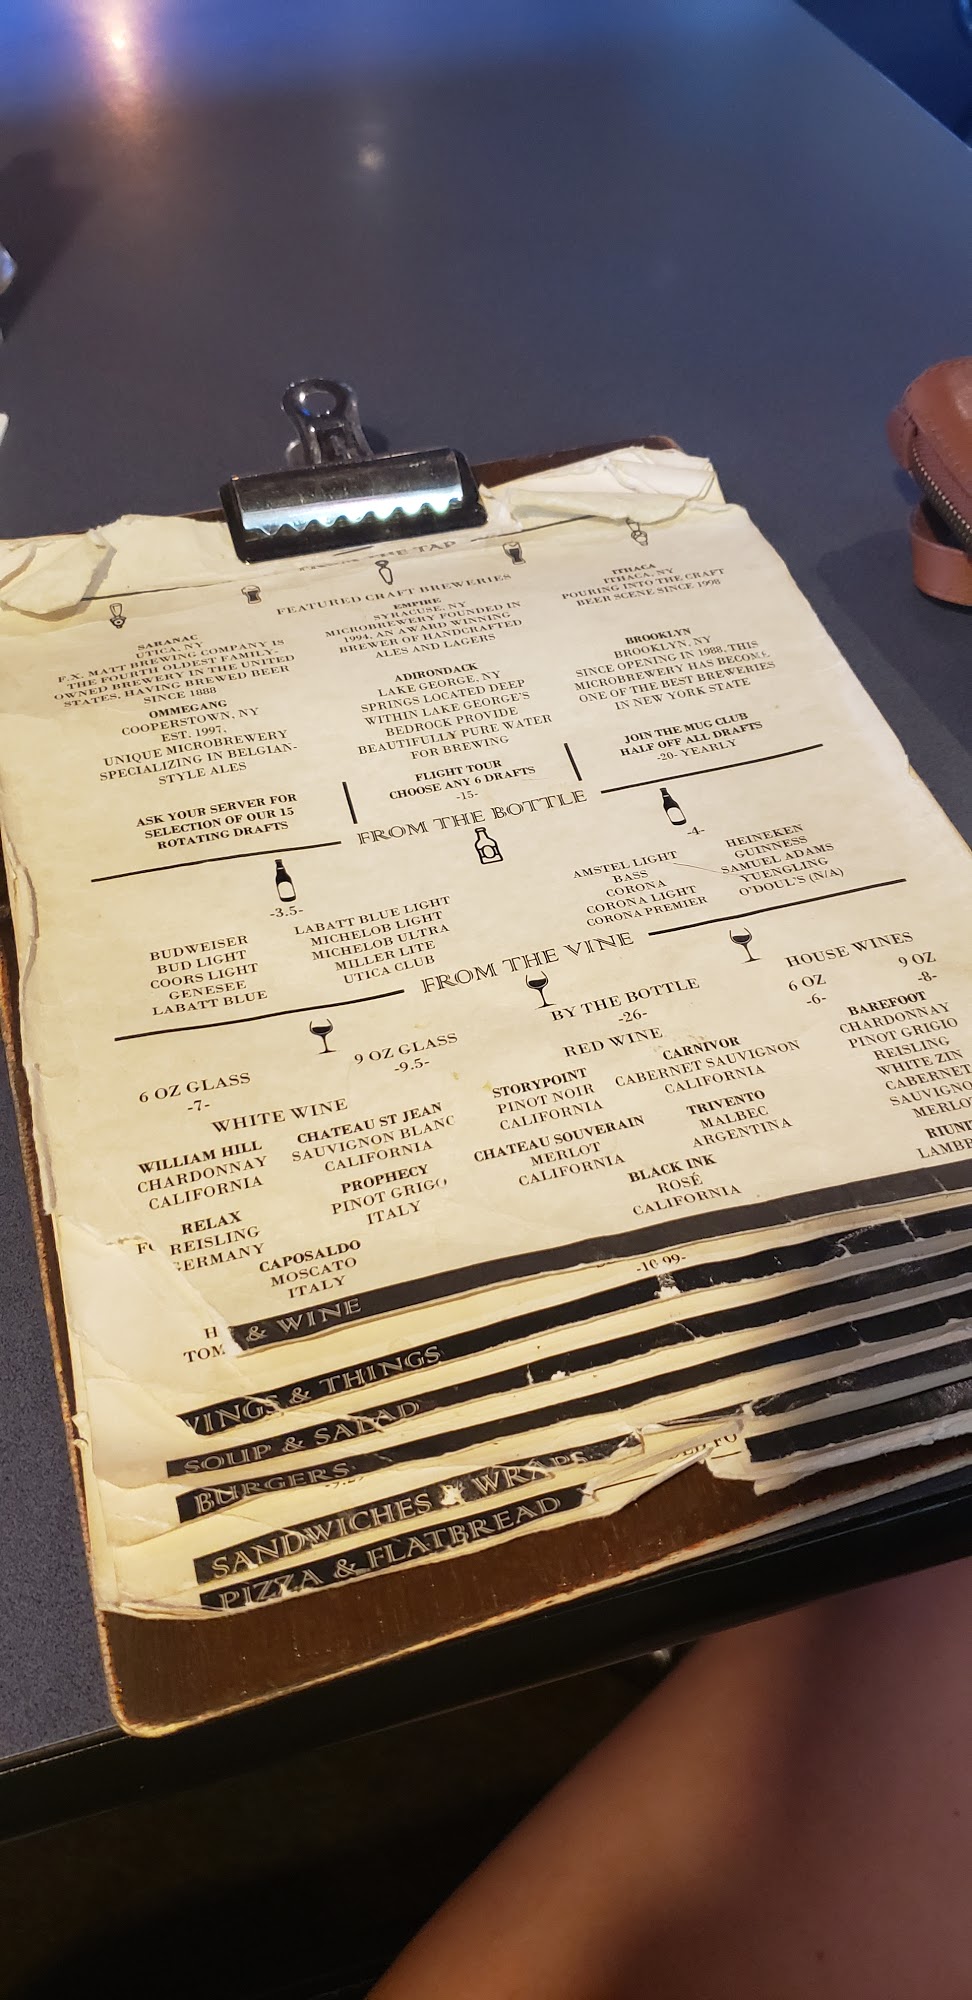 THE TAP
FEATURED CRAFT BREWERIES
SARANAC
UTICA, NY
F.X. MATT BREWING COMPANY IS
THE FOURTH OLDEST FAMILY-
OWNED BREWERY IN THE UNITED
STATES, HAVING BREWED BEER
SINCE 1888
EMPIRE
SYRACUSE, NY
MICROBREWERY FOUNDED IN
1994, AN AWARD WINNING
BREWER OF HANDCRAFTED
ALES AND LAGERS
ITHACA
ITHACA, NY
POURING INTO THE CRAFT
BEER SCENE SINCE 1998
OMMEGANG
COOPERSTOWN, NY
EST. 1997,
UNIQUE MICROBREWERY
SPECIALIZING IN BELGIAN-
STYLE ALES
ADIRONDACK
LAKE GEORGE, NY
SPRINGS LOCATED DEEP
WITHIN LAKE GEORGE'S
BEDROCK PROVIDE
BEAUTIFULLY PURE WATER
FOR BREWING
BROOKLYN
BROOKLYN, NY
SINCE OPENING IN 1988, THIS
MICROBREWERY HAS BECOME
ONE OF THE BEST BREWERIES
IN NEW YORK STATE
ASK YOUR SERVER FOR
SELECTION OF OUR 15
ROTATING DRAFTS
FLIGHT TOUR
CHOOSE ANY 6 DRAFTS
-15-
JOIN THE MUG CLUB
HALF OFF ALL DRAFTS
-20- YEARLY
FROM THE BOTTLE
-3.5-
BUDWEISER
BUD LIGHT
COORS LIGHT
GENESEE
LABATT BLUE
LABATT BLUE LIGHT
MICHELOB LIGHT
MICHELOB ULTRA
MILLER LITE
UTICA CLUB
-4-
AMSTEL LIGHT
BASS
CORONA
CORONA LIGHT
CORONA PREMIER
HEINEKEN
GUINNESS
SAMUEL ADAMS
YUENGLING
O'DOUL'S (N/A)
FROM THE VINE
6 OZ GLASS
-7-
9 OZ GLASS
-9.5-
WHITE WINE
WILLIAM HILL
CHARDONNAY
CALIFORNIA
CHATEAU ST JEAN
SAUVIGNON BLANC
CALIFORNIA
RELAX
REISLING
GERMANY
PROPHECY
PINOT GRIGO
ITALY
CAPOSALDO
MOSCATO
ITALY
BY THE BOTTLE
-26-
RED WINE
STORYPOINT
PINOT NOIR
CALIFORNIA
CARNIVOR
CABERNET SAUVIGNON
CALIFORNIA
CHATEAU SOUVERAIN
MERLOT
CALIFORNIA
TRIVENTO
MALBEC
ARGENTINA
BLACK INK
ROSÉ
CALIFORNIA
HOUSE WINES
6 OZ
-6-
9 OZ
-8-
BAREFOOT
CHARDONNAY
PINOT GRIGIO
REISLING
WHITE ZIN
CABERNET
SAUVIGNO
MERLO
RIUNI
LAMBR
& WINE
TOM
WINGS & THINGS
SOUP & SALAD
BURGERS
SANDWICHES & WRAPS
PIZZA & FLATBREAD